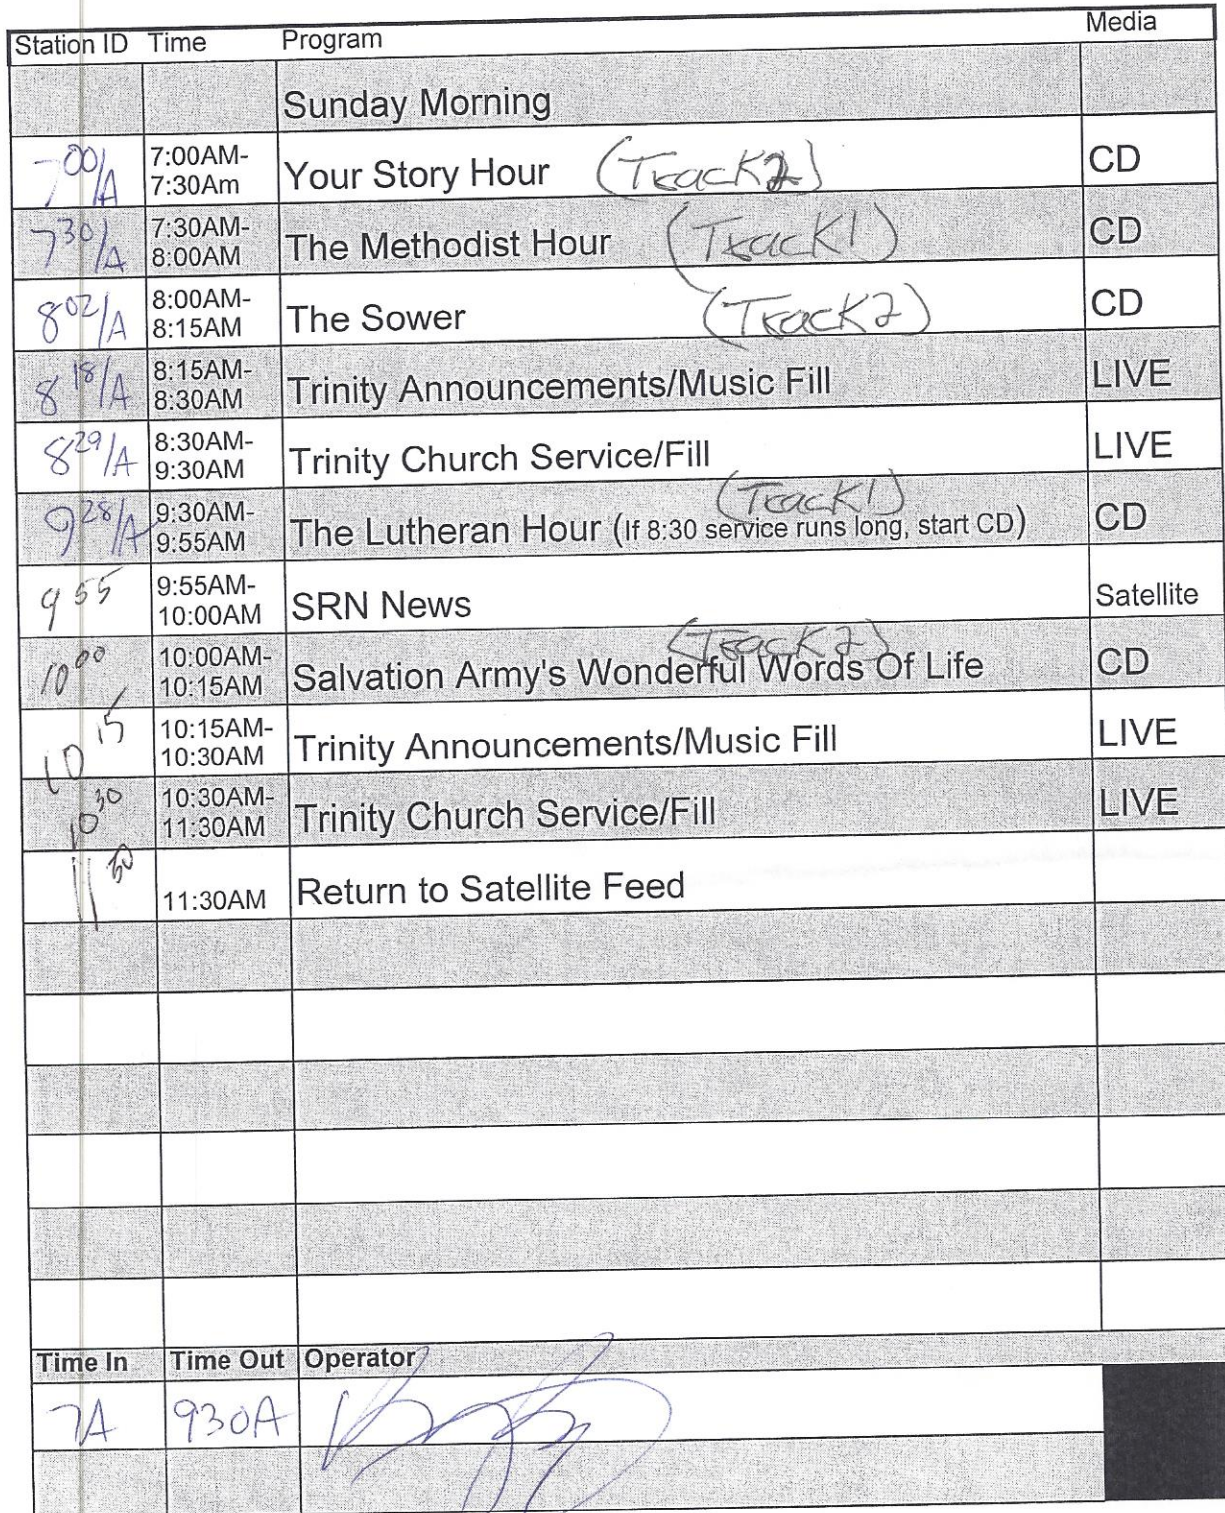 Station ID Time Program Media
Sunday Morning
7 00/A 7:00AM-
7:30Am Your Story Hour (Track 2) CD
7 30/A 7:30AM-
8:00AM The Methodist Hour (Track 1) CD
8 02/A 8:00AM-
8:15AM The Sower (Track 2) CD
8 18/A 8:15AM-
8:30AM Trinity Announcements/Music Fill LIVE
8 29/A 8:30AM-
9:30AM Trinity Church Service/Fill LIVE
(Track 1)
9 28/A 9:30AM-
9:55AM The Lutheran Hour (If 8:30 service runs long, start CD) CD
9 55 9:55AM-
10:00AM SRN News Satellite
(Track 2)
10 00 10:00AM-
10:15AM Salvation Army's Wonderful Words Of Life CD
10 15 10:15AM-
10:30AM Trinity Announcements/Music Fill LIVE
10 30 10:30AM-
11:30AM Trinity Church Service/Fill LIVE
11 30 11:30AM Return to Satellite Feed
Time In Time Out Operator
7A 930A